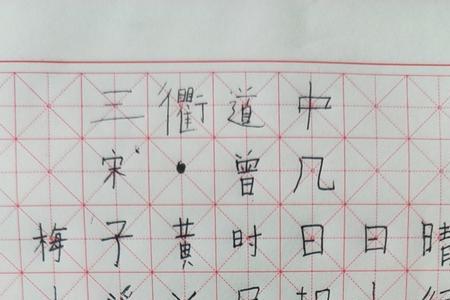 三衢道中
宋·曾几
梅子黄时日日晴